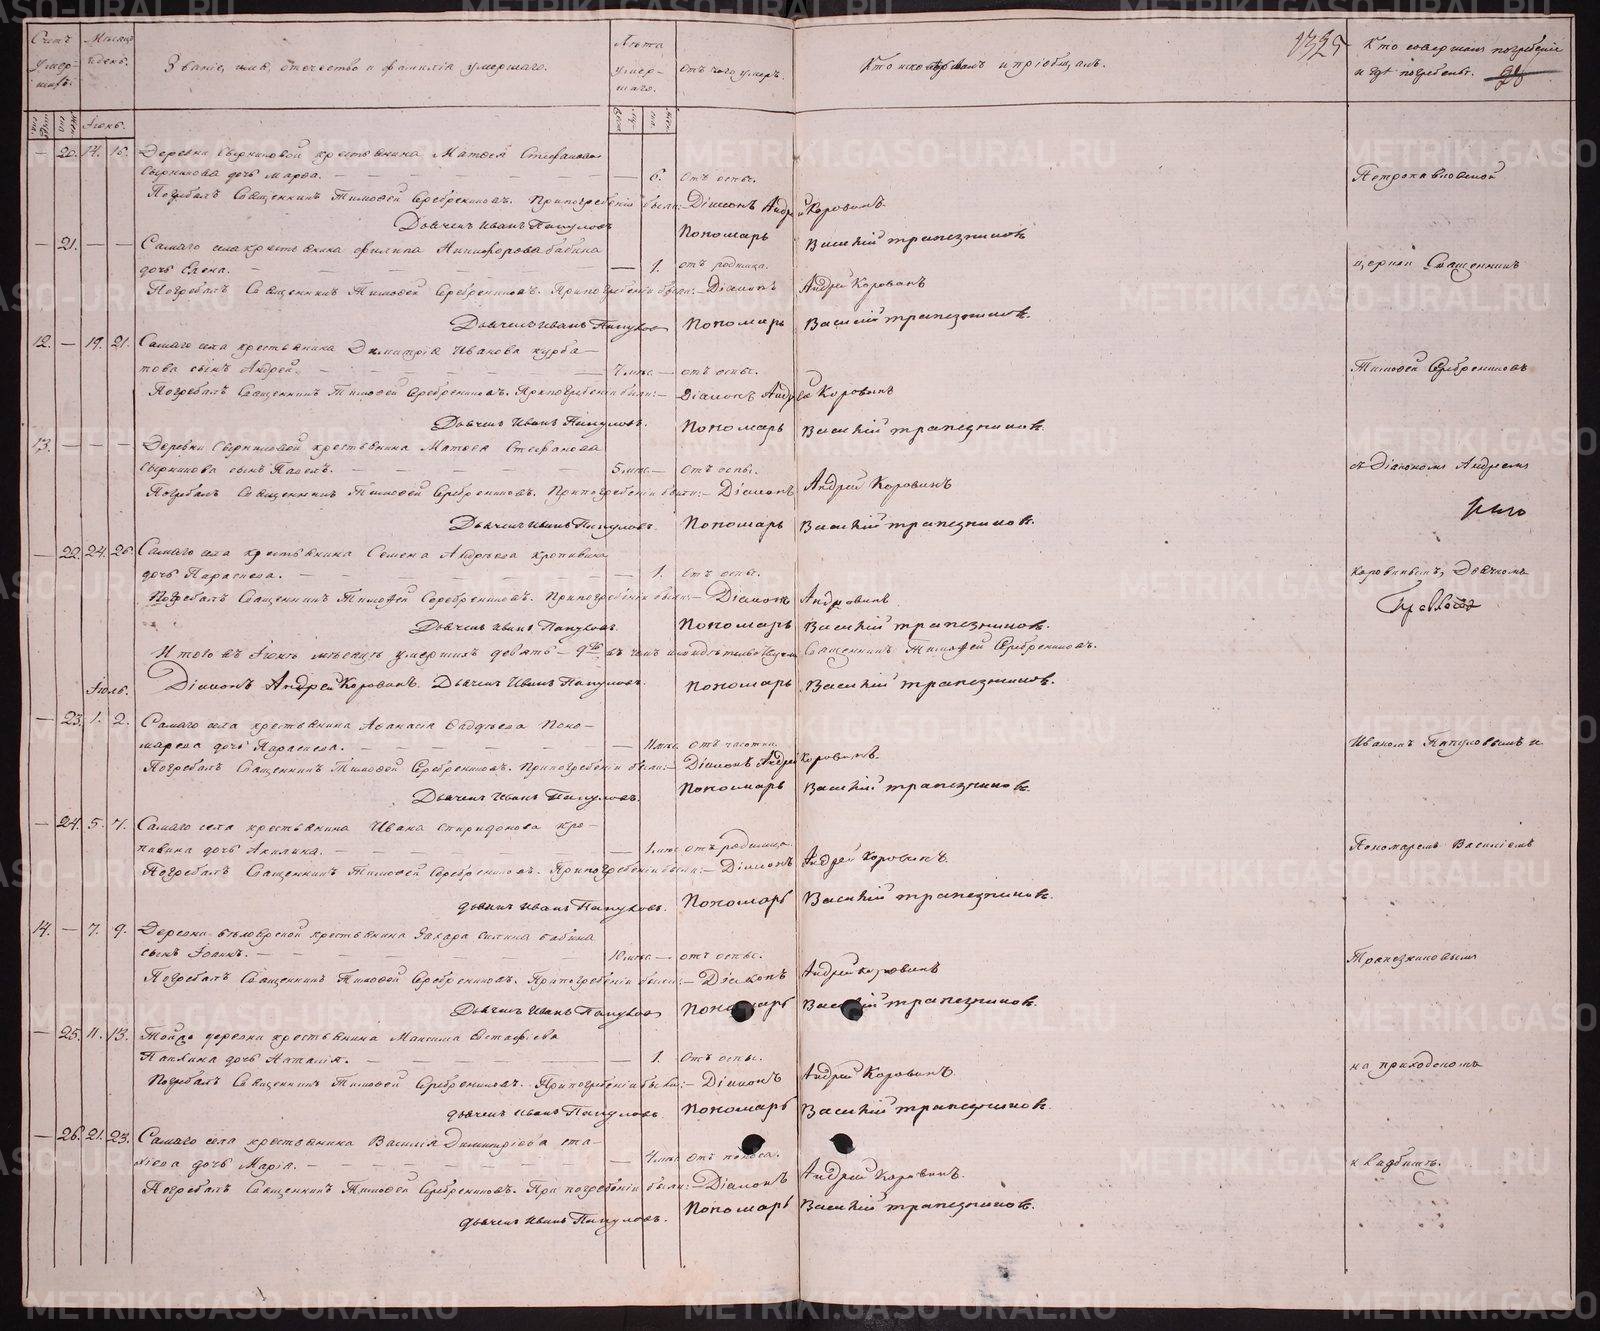 Счетъ умер-шихъ.
Мѣсяцъ и день.
Званіе, имя, отечество и фамилія умершаго.
Лѣта умер-шаго.
отъ чего умеръ.
Кто исповѣдывалъ и пріобщалъ.
1325
Кто совершалъ погребеніе и гдѣ погребены.
Іюнь.
— 20. 14. 16. Деревни Сыркиновой крестьянина Матѳея Стефанова
Сыркинова дочь Марѳа. — 6. отъ оспы.
Погребалъ Священникъ Тимоѳей Серебрениковъ. При погребеніи были:– Діаконъ Андрей Коровинъ.
Дьячекъ Иванъ Папуловъ Пономарь Василій Трапезниковъ
— 21. — — Самаго села крестьянина Филипа Никифорова Бабина
дочь Елена. — 1. отъ родимца.
Погребалъ Священникъ Тимоѳей Серебрениковъ. При погребеніи были:– Діаконъ Андрей Коровинъ
Дьячекъ Иванъ Папуловъ Пономарь Василій Трапезниковъ.
12. — 19. 21. Самаго села крестьянина Димитрія Иванова Курба-
това сынъ Андрей. — 7 мѣс. — отъ оспы.
Погребалъ Священникъ Тимоѳей Серебрениковъ. При погребеніи были:– Діаконъ Андрей Коровинъ
Дьячекъ Иванъ Папуловъ. Пономарь Василій Трапезниковъ.
13. — — — Деревни Сыркиновой крестьянина Матѳея Стефанова
Сыркинова сынъ Павелъ. — 5 мѣс. — отъ оспы.
Погребалъ Священникъ Тимоѳей Серебрениковъ. При погребеніи были:– Діаконъ Андрей Коровинъ
Дьячекъ Иванъ Папуловъ. Пономарь Василій Трапезниковъ.
— 22. 24. 26. Самаго села крестьянина Семена Андреева Кропивина
дочь Параскева. — 1. отъ оспы.
Погребалъ Священникъ Тимоѳей Серебрениковъ. При погребеніи были:– Діаконъ
Дьячекъ Иванъ Папуловъ. Пономарь Василій Трапезниковъ.
Итого въ Іюнѣ мѣсяцѣ умершихъ девять – въ чемъ и свидѣтельствуемъ Священникъ Тимоѳей Серебрениковъ.
Діаконъ Андрей Коровинъ. Дьячекъ Иванъ Папуловъ. Пономарь Василій Трапезниковъ.
Іюль.
— 23. 1. 2. Самаго села крестьянина Аѳанасія Ѳаддѣева Поно-
марева дочь Параскева. — 11 мѣс. отъ чахотки.
Погребалъ Священникъ Тимоѳей Серебрениковъ. При погребеніи были:– Діаконъ Андрей Коровинъ.
Дьячекъ Иванъ Папуловъ. Пономарь Василій Трапезниковъ.
— 24. 5. 7. Самаго села крестьянина Ивана Спиридонова Кро-
пивина дочь Акилина. — 1 мѣс. отъ родимца.
Погребалъ Священникъ Тимоѳей Серебрениковъ. При погребеніи были:– Діаконъ Андрей Коровинъ.
Дьячекъ Иванъ Папуловъ. Пономарь Василій Трапезниковъ.
14. — 7. 9. Деревни крестьянина Захара Силина Бабина
сынъ Іоаннъ. — 10 мѣс. — отъ оспы.
Погребалъ Священникъ Тимоѳей Серебрениковъ. При погребеніи были:– Діаконъ Андрей Коровинъ
Дьячекъ Иванъ Папуловъ Пономарь Василій Трапезниковъ.
— 25. 11. 13. Тойже деревни крестьянина Максима Евстафіева
дочь Наталія. — 1. отъ оспы.
Погребалъ Священникъ Тимоѳей Серебрениковъ. При погребеніи были:– Діаконъ Андрей Коровинъ.
Дьячекъ Иванъ Папуловъ. Пономарь Василій Трапезниковъ.
— 26. 21. 23. Самаго села крестьянина Василія Димитріева Ста-
хіева дочь Марія. — 4 мѣс. отъ поноса.
Погребалъ Священникъ Тимоѳей Серебрениковъ. При погребеніи были:– Діаконъ Андрей Коровинъ.
Дьячекъ Иванъ Папуловъ. Пономарь Василій Трапезниковъ.
Петропавловской
церкви Священникъ
Тимоѳей Серебрениковъ
съ Діакономъ Андреемъ
Коровинымъ, Дьячкомъ
Иваномъ Папуловымъ и
Пономаремъ Василіемъ
Трапезниковымъ
на приходскомъ
кладбищѣ.
METRIKI.GASO-URAL.RU